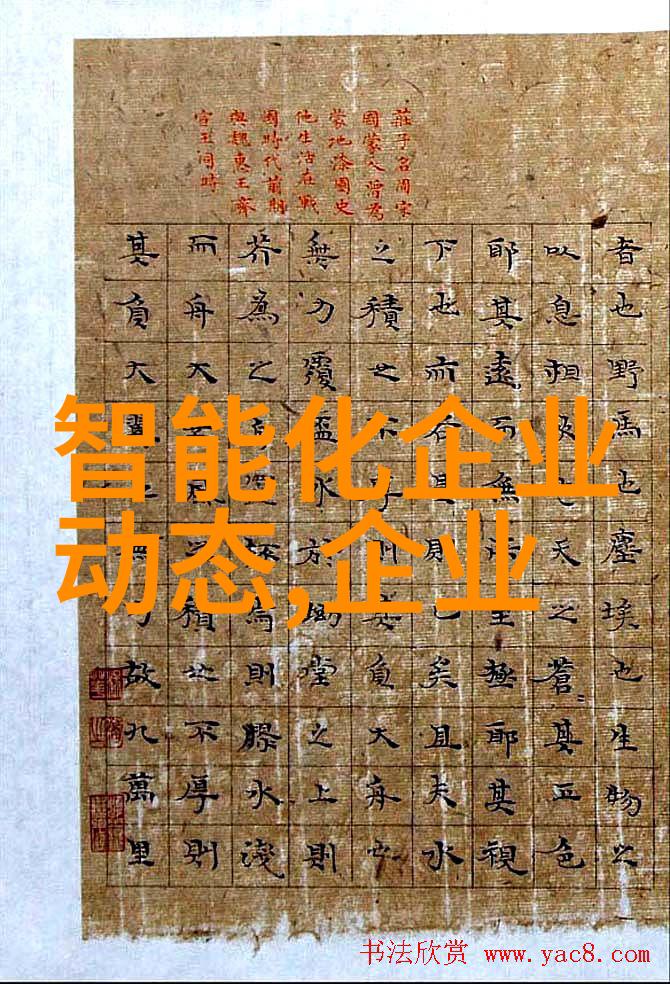 智能化企业
动态,企业
莊子名周宋
國蒙人曾為
蒙地漆園史
他生活在戰
國時代前期
與魏惠王齊
宣王同時
者也野馬也塵埃也生物之
以息相吹也天之蒼其正色
耶其遠而無所至極耶其視
下也而若是則已矣且夫水
之積也不厚則其負大舟也
無力覆盃水於坳堂之上則
芥為之舟置杯焉則膠水淺
而舟大也風之積也不厚則
其負大翼也無力故九萬里
书法欣赏 www.yac8.com